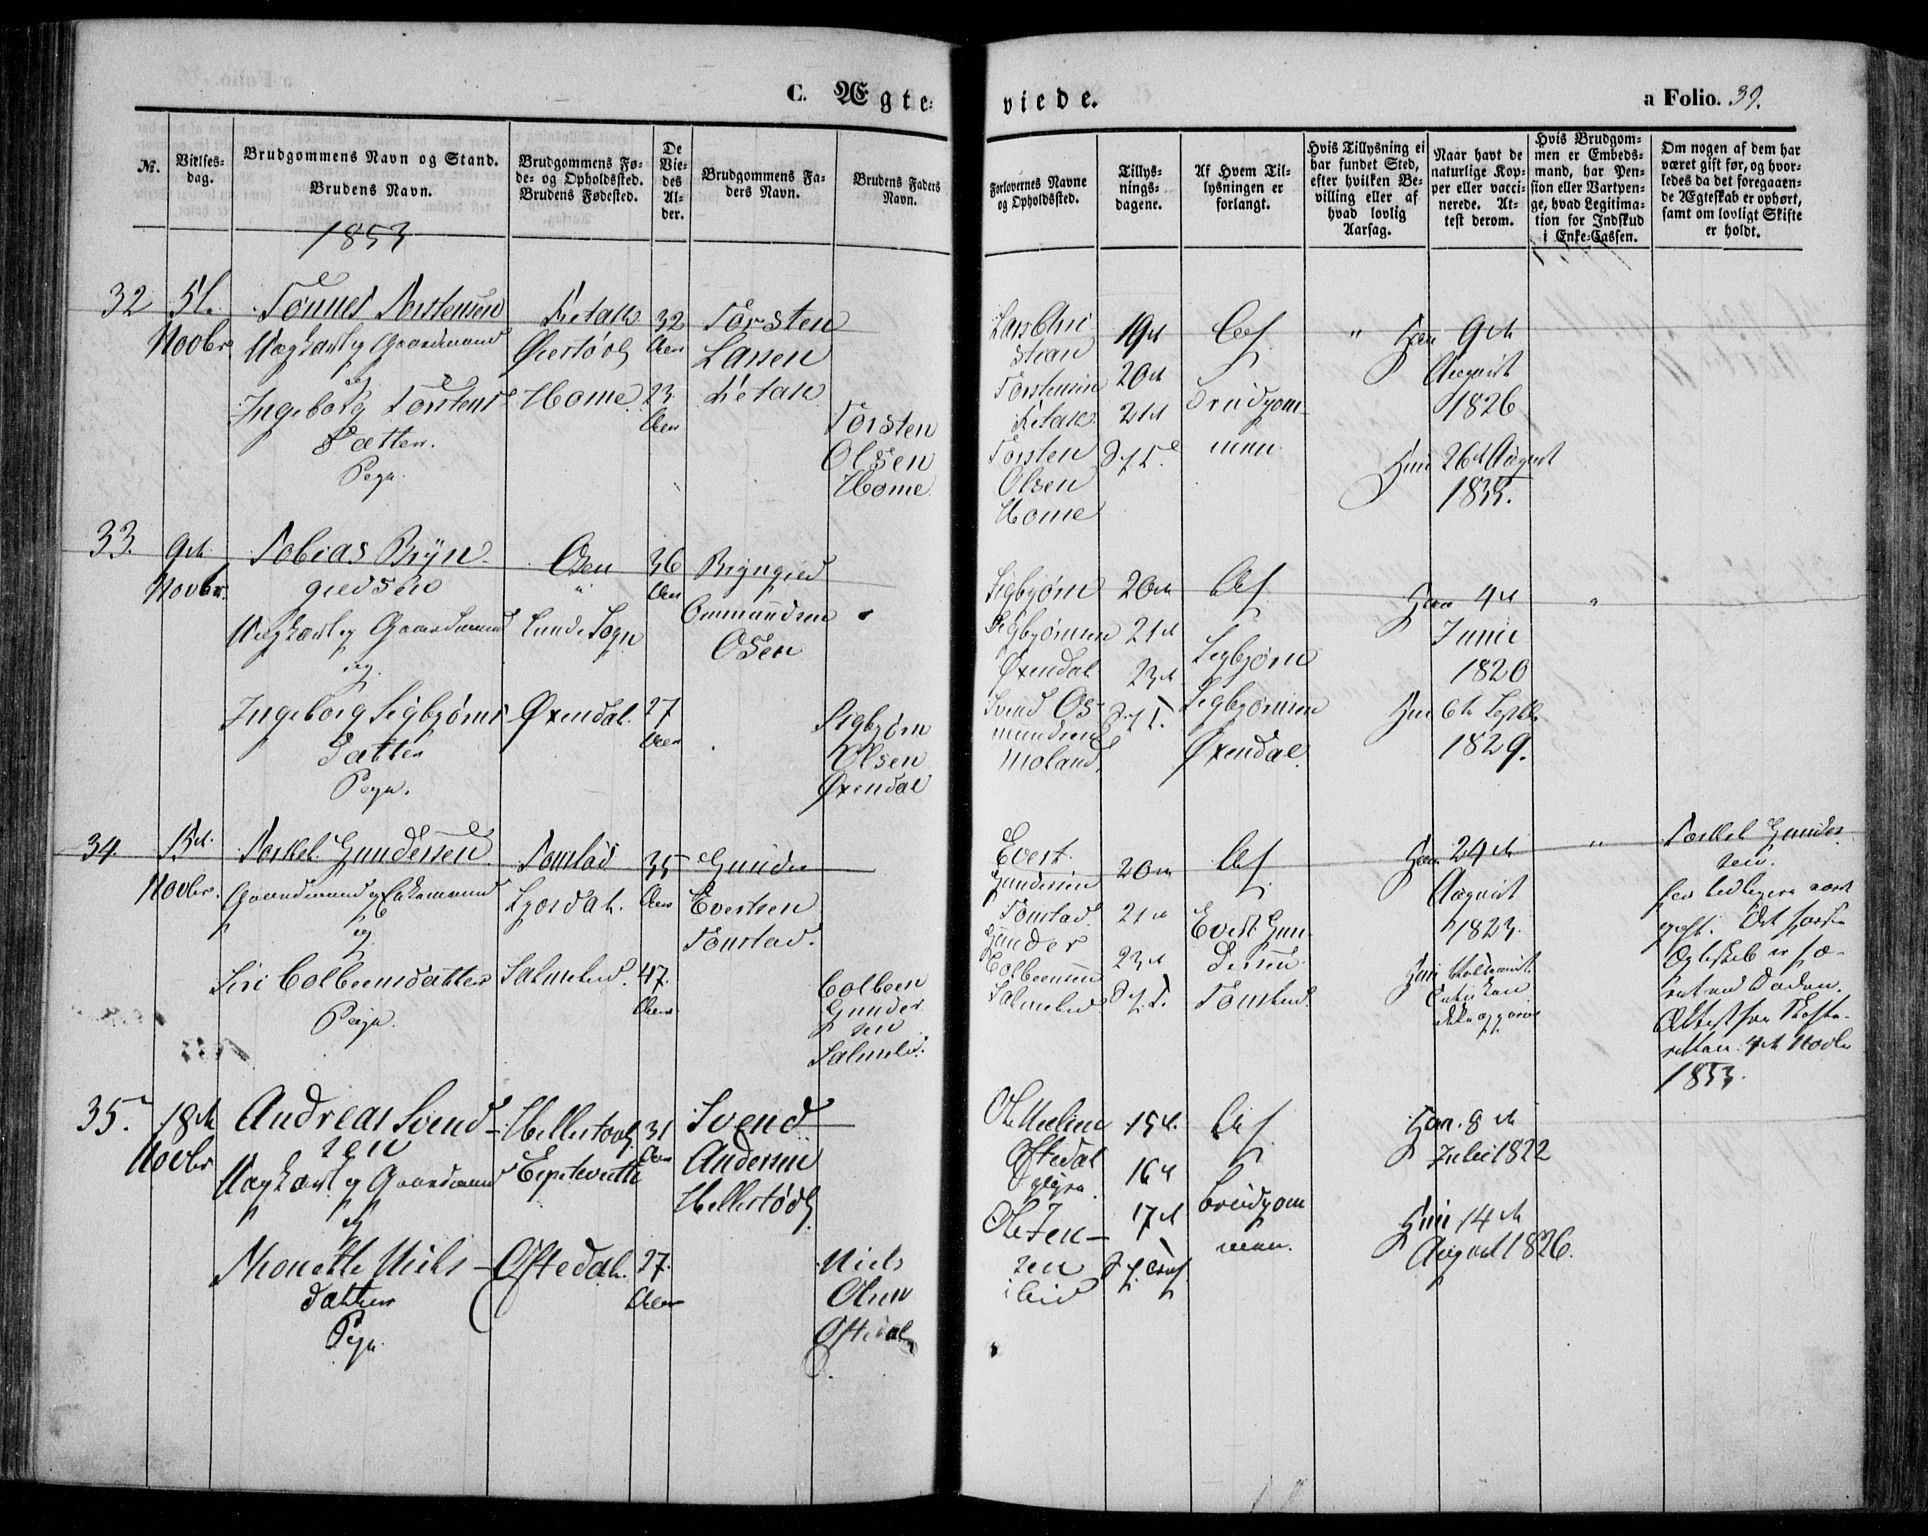 C. Ægte-
viede.
a Folio. 39.
No.
Vielses-
dag.
Brudgommens Navn og Stand.
Brudens Navn.
Brudgommens Fø-
de- og Opholdssted.
Brudens Fødested.
De
Vie-
des
Al-
der.
Brudgommens Fa-
ders Navn.
Brudens Faders
Navn.
Forlovernes Navne
og Opholdssted.
Tillys-
nings-
dagene.
Af Hvem Til-
lysningen er
forlangt.
Hvis Tillysning ei
har fundet Sted,
efter hvilken Be-
villing eller af
hvad lovlig
Aarsag.
Naar havt de
naturlige Kop-
per eller vacci-
nerede. At-
test derom.
Hvis Brudgom-
men er Embeds-
mand, har Pen-
sion eller Vartpen-
ge, hvad Legitima-
tion for Indskud
i Enke-Cassen.
Om nogen af dem har
været gift før, og hvor-
ledes da det foregaaen-
de Ægteskab er ophørt,
samt om lovligt Skifte
er holdt.
1853
32
5te
Novbr
Tønnes Torstensen
Ungkarl og Gaardmand
og
Ingeborg Torstens
Datter.
Pige.
Ketak
Øiestøvl
Home
32
Aar
23.
Aar
Torsten
Larsen
Ketak
Torsten
Olsen
Home
Lars Chri
stian
Torstensen
Ketak
Torsten
Olsen
Home
19de
20de
21de
S. e. T.
Af
Brudgom-
men.
"
Han 9de
August
1826
Hun 26de August
1835.
33.
9de
Novbr.
Tobias Bryn-
gieldsen
Ungkarl og Gaardmand
og
Ingeborg Sigbjørns
Datter
Pige.
Osen
"
Lunde Sogn
Øxendal.
36
Aar
27
Aar
Bryngield
Ommundsen
Osen
Sigbjørn
Olsen
Øxendal
Sigbjørn
Sigbjørnsen
Øxendal
Svend Os-
mundsen
Moland.
20de
21de
23de
S. e. T.
Af
Sigbjørn
Sigbjørnsen
Øxendal.
Han 4de
Junii
1820
Hun 6te Septbr
1829.
"
34.
15de
Novbr.
Torkel Gundersen
Gaardmand og Enkemand
og
Siri Colbeensdatter
Pige.
Tonstad
Lyordal.
Salmelid.
35
Aar
47.
Aar
Gunder
Evertsen
Tonstad.
Colbeen
Gunder
sen
Salmelid.
Evert
Gundersen
Tonstad.
Gunder
Colbeensen
Salmelid
20de
21de
23de
S. e. T.
Af
Evert Gun-
dersen
Tonstad.
Han 24de
August
1823.
Hun
Attest kan
ikke opgives
"
Torkel Gunder
sen.
har tidligere været
gift. Det første
Ægteskab er hæ-
vet ved Døden.
Attest fra Skifte-
retten 4de Novbr
1853.
35.
18de
Novbr
Andreas Svend
sen
Ungkarl og Gaardmand
og
Nionette Niels
datter
Pige.
Hellestøvl
Espetveith
Øftedal.
31
Aar
27.
Aar
Svend
Andersen
Hellestøvl.
Niels
Olsen
Øftedal
Ole Nielsen
Øftedal
Ole Jen-
sen
ibid
15de
16de
17de
Af
Brudgom
men.
Han. 8de
Julii 1822
Hun 14de
August 1826.